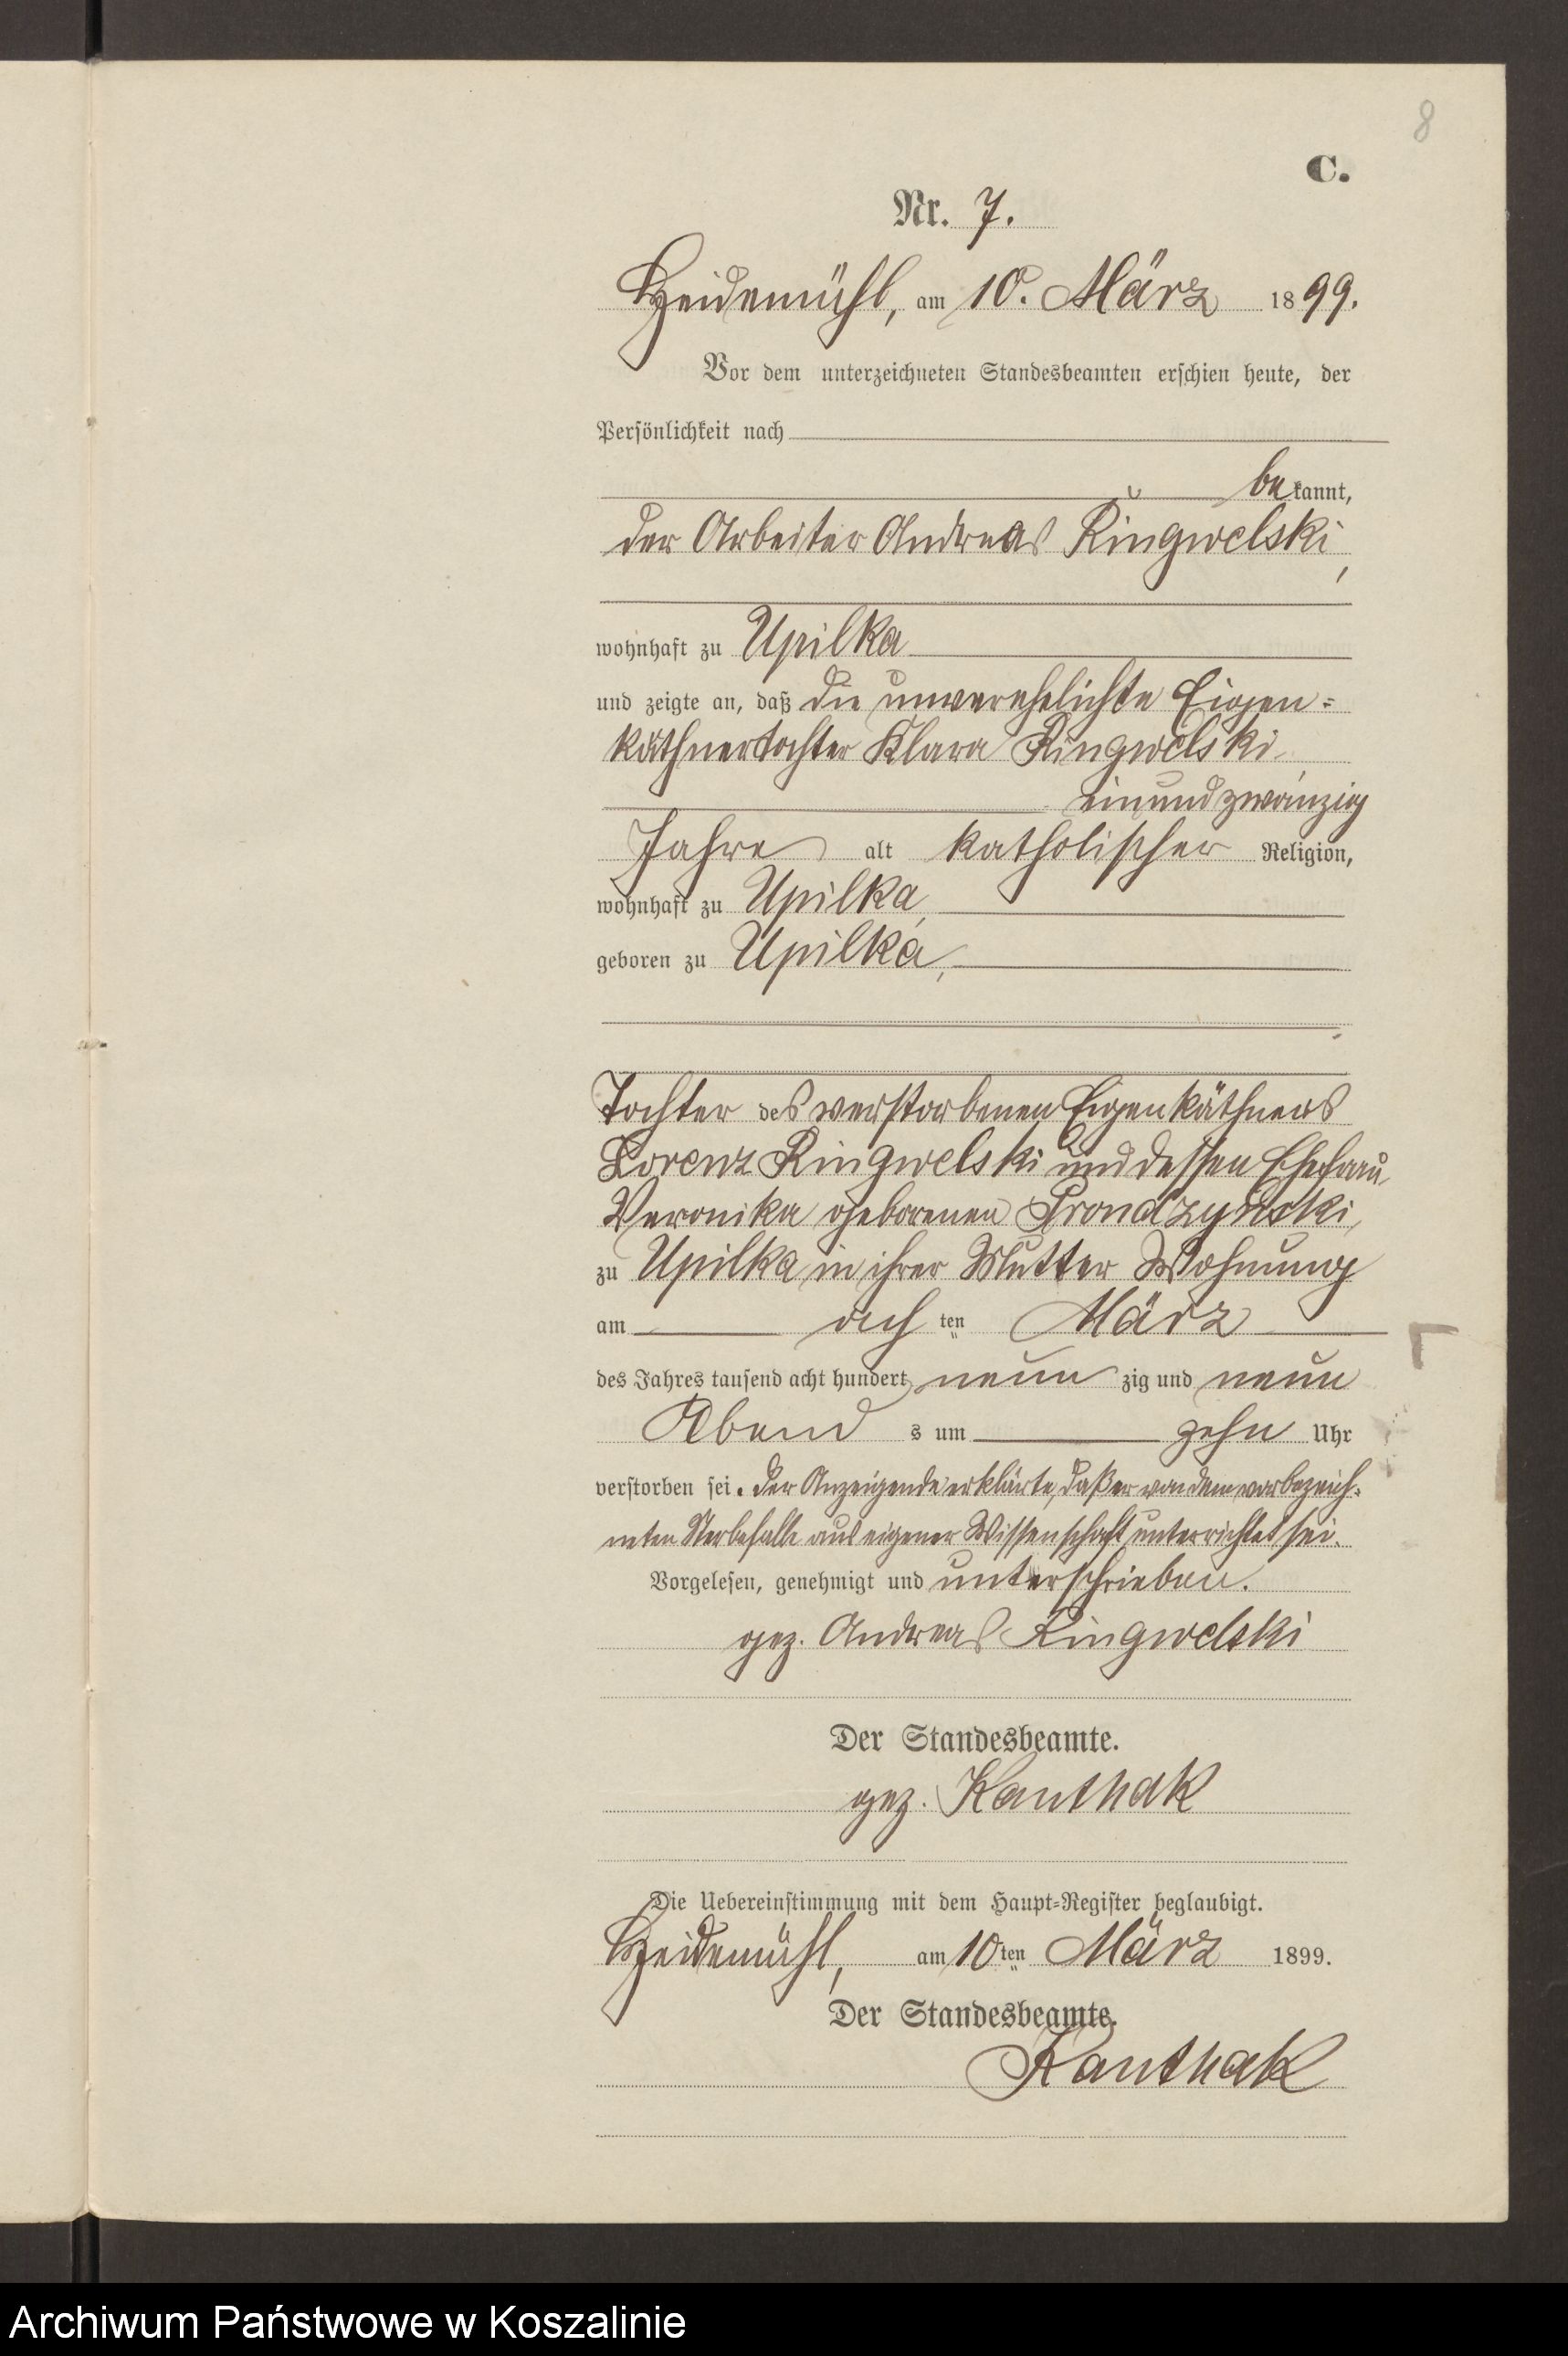 8
C.
Nr. 7.
Heidemühl, am 10. März 1899.
Vor dem unterzeichneten Standesbeamten erschien heute, der
Persönlichkeit nach
bekannt,
der Arbeiter Andreas Ringwelski,
wohnhaft zu Upilka
und zeigte an, daß die unverehelichte Eigen=
käthnertochter Klara Ringwelski,
einundzwanzig
Jahre alt katholischer Religion,
wohnhaft zu Upilka,
geboren zu Upilka,
Tochter des verstorbenen Eigenkäthners
Lorenz Ringwelski und dessen Ehefrau,
Veronika geborenen Prondzynski,
zu Upilka in ihrer Mutter Wohnung
am achten März
des Jahres tausend acht hundert neunzig und neun
Abends um zehn Uhr
verstorben sei. Der Anzeigende erklärte, daß er von dem vorbezeich=
neten Sterbefalle aus eigener Wissenschaft unterrichtet sei.
Vorgelesen, genehmigt und unterschrieben.
gez. Andreas Ringwelski
Der Standesbeamte.
gez. Kanthak
Die Uebereinstimmung mit dem Haupt=Register beglaubigt.
Heidemühl, am 10ten März 1899.
Der Standesbeamte.
Kanthak
Archiwum Państwowe w Koszalinie